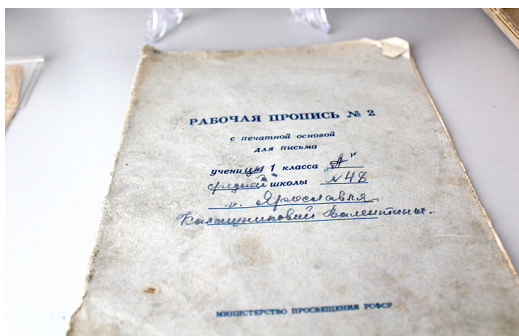 РАБОЧАЯ ПРОПИСЬ № 2
с печатной основой
для письма
ученицы 1 класса „А"
средней школы №48
г. Ярославля
Калашниковой Валентины.
МИНИСТЕРСТВО ПРОСВЕЩЕНИЯ РСФСР